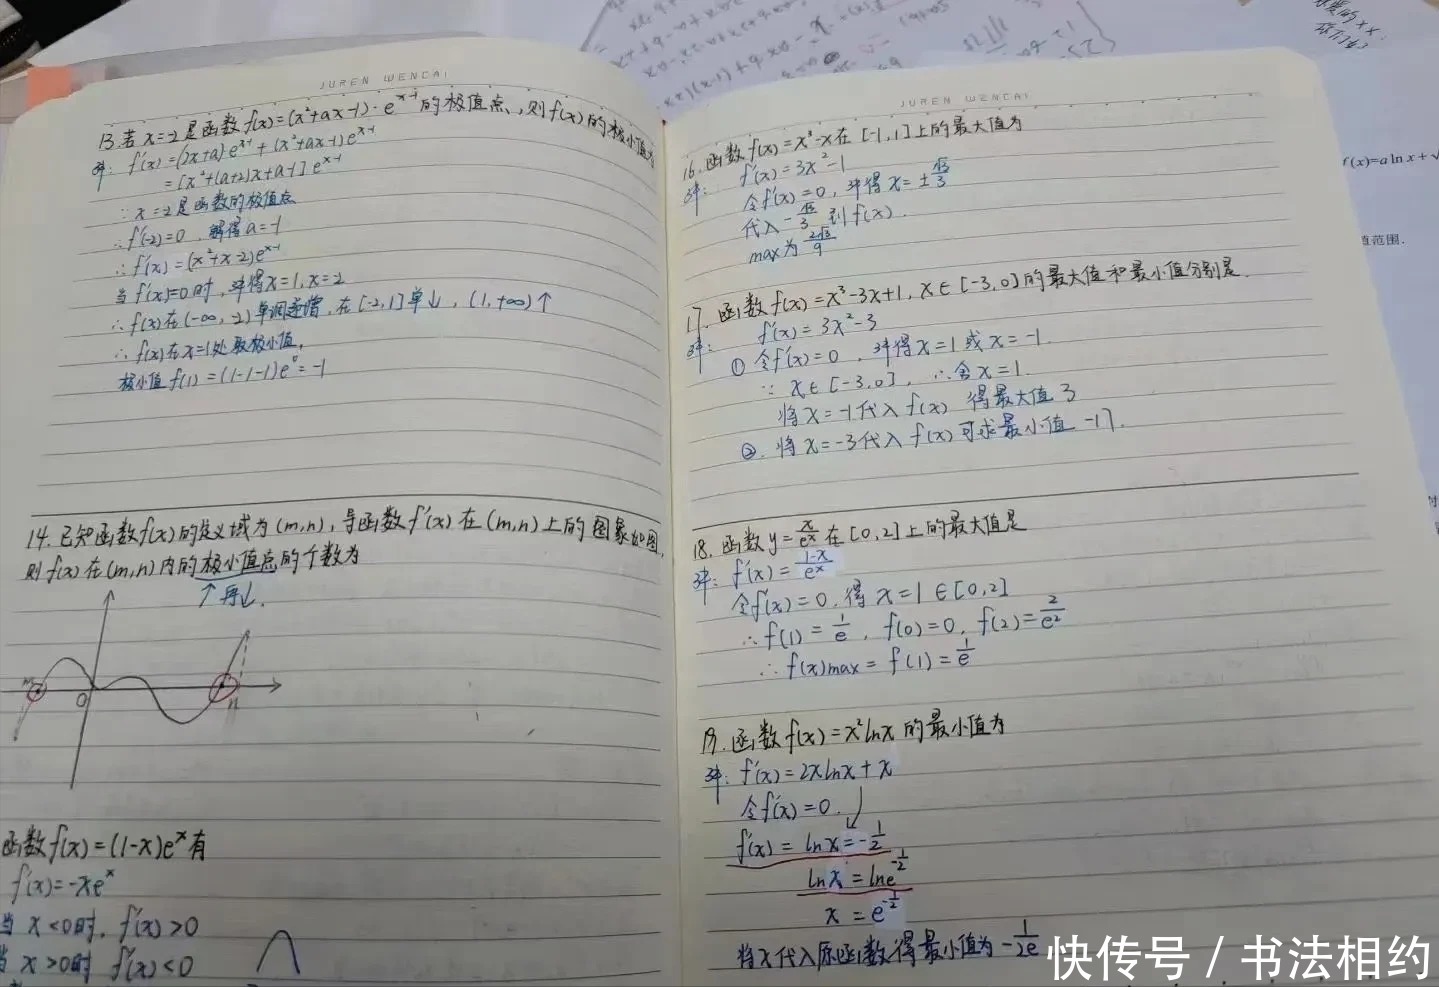 JUREN WENCAI
13.若x=-2是函数f(x)=(x²+ax-1)·e^(x-1)的极值点,则f(x)的极小值为
解: f'(x)=(2x+a)·e^(x-1)+(x²+ax-1)e^(x-1)
=[x²+(a+2)x+a-1]e^(x-1)
∵x=-2是函数的极值点
∴f'(-2)=0,解得a=-1
∴f'(x)=(x²+x-2)e^(x-1)
当f'(x)=0时,解得x=1,x=-2
∴f(x)在(-∞,-2)单调递增,在[-2,1]单↓,(1,+∞)↑
∴f(x)在x=1处取极小值,
极小值f(1)=(1-1-1)e⁰=-1
14.已知函数f(x)的定义域为(m,n),导函数f'(x)在(m,n)上的图象如图,
则f(x)在(m,n)内的极小值点的个数为
↑再↓.
m
O
n
函数f(x)=(1-x)e^x有
f'(x)=-xe^x
当x<0时,f'(x)>0
当x>0时 f'(x)<0
JUREN WENCAI
16.函数f(x)=x³-x在[-1,1]上的最大值为
解: f'(x)=3x²-1
令f'(x)=0,解得x=±√3/3
代入-√3/3到f(x).
max为2√3/9
17.函数f(x)=x³-3x+1,x∈[-3,0]的最大值和最小值分别是.
解: f'(x)=3x²-3
①令f'(x)=0,解得x=1或x=-1.
∵x∈[-3,0],∴舍x=1.
将x=-1代入f(x) 得最大值3
②.将x=-3代入f(x)可求最小值-17.
18.函数y=x/e^x在[0,2]上的最大值是
解: f'(x)=(1-x)/e^x
令f'(x)=0,得x=1∈[0,2]
∴f(1)=1/e,f(0)=0,f(2)=2/e²
∴f(x)max=f(1)=1/e
19.函数f(x)=x²lnx的最小值为
解: f'(x)=2xlnx+x
令f'(x)=0.
f'(x)=lnx=-1/2
lnx=lne^(-1/2)
x=e^(-1/2)
将x代入原函数得最小值为-1/2e
f(x)=a ln x+√
值范围.
快传号/书法相约